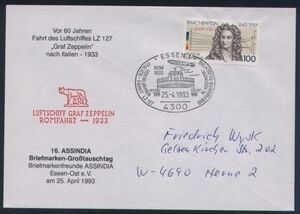 Vor 60 Jahren
Fahrt des Luftschiffes LZ 127
„Graf Zeppelin"
nach Italien - 1933
LUFTSCHIFF GRAF ZEPPELIN
ROMFAHRT — 1933
16. ASSINDIA
Briefmarken-Großtauschtag
Briefmarkenfreunde ASSINDIA
Essen-Ost e.V.
am 25. April 1993
ISAAC NEWTON
100
ESSEN
ROM
1933
25.-4.1993
4300
Friedrich
Gelsenkirchener Str. 202
W-4690 Herne 2